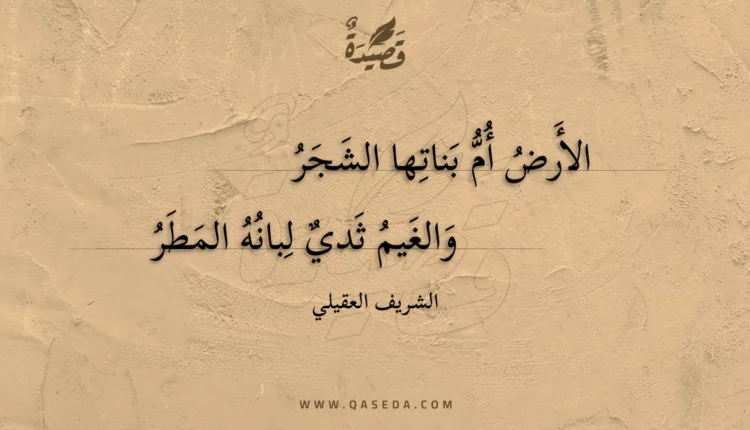 قَصِيدَةٌ
الأَرضُ أُمُّ بَناتِها الشَجَرُ
وَالغَيمُ ثَديٌ لِبانُهُ المَطَرُ
الشريف العقيلي
WWW.QASEDA.COM